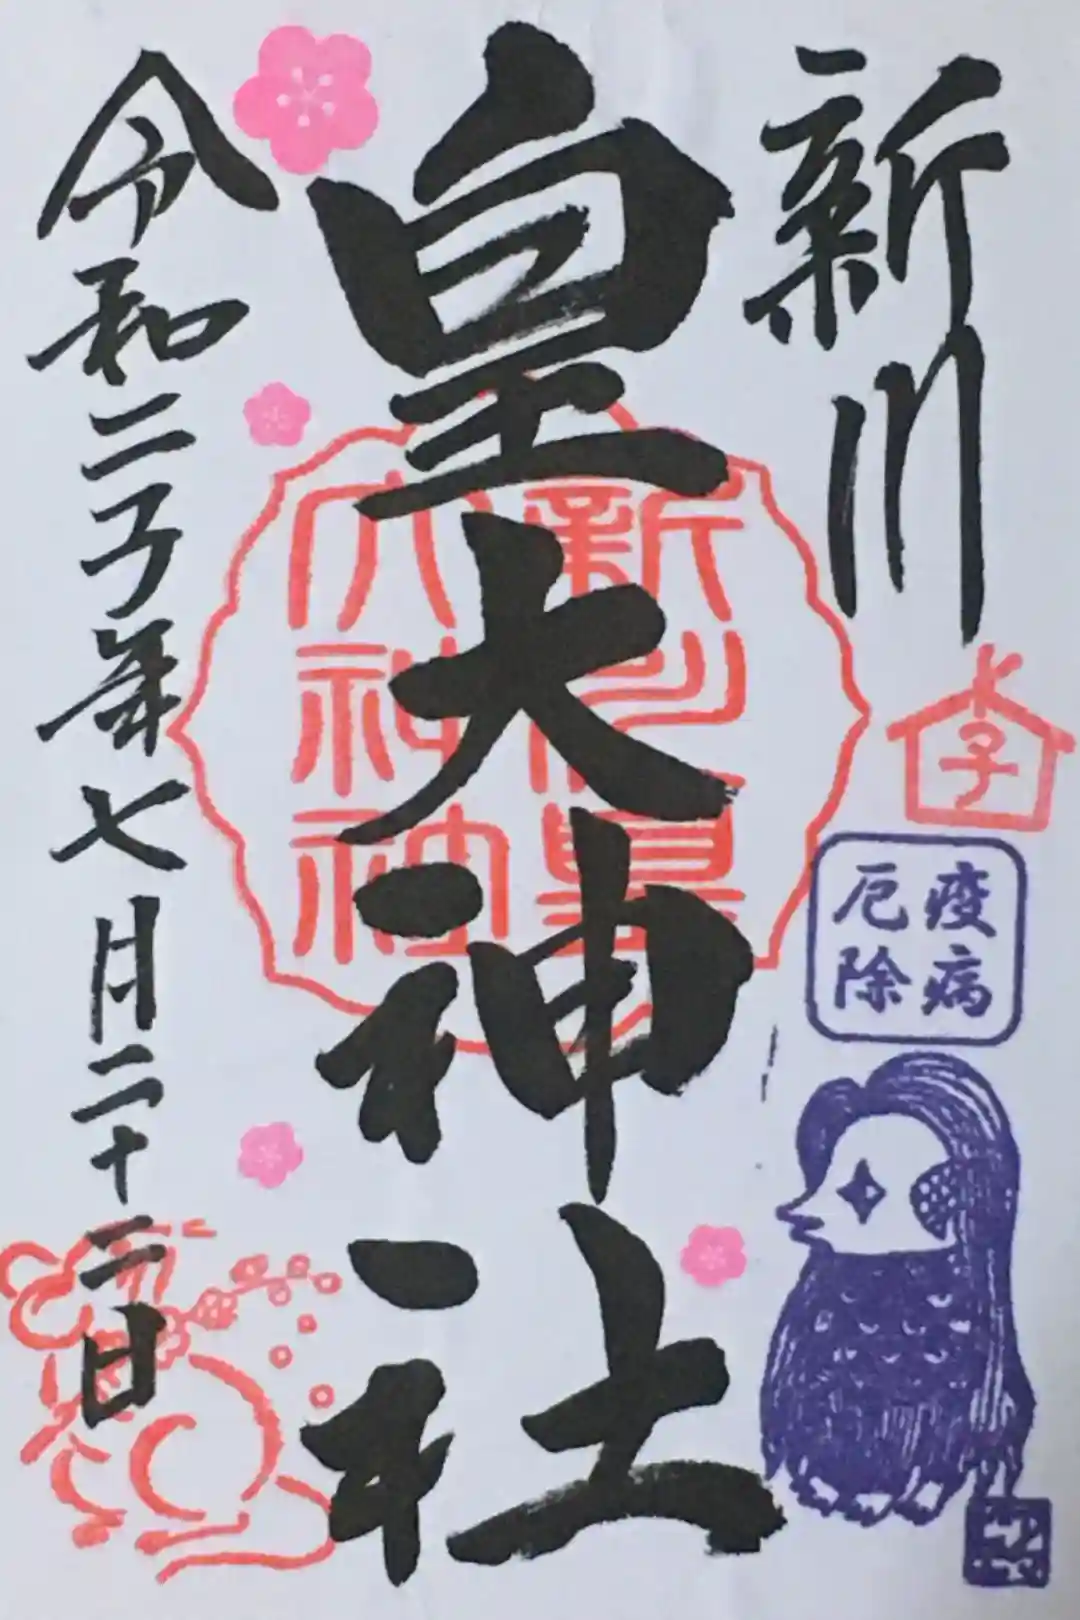 新川
皇大神社
令和二子年七月二十二日
新川皇
大神社
子
疫病
厄除